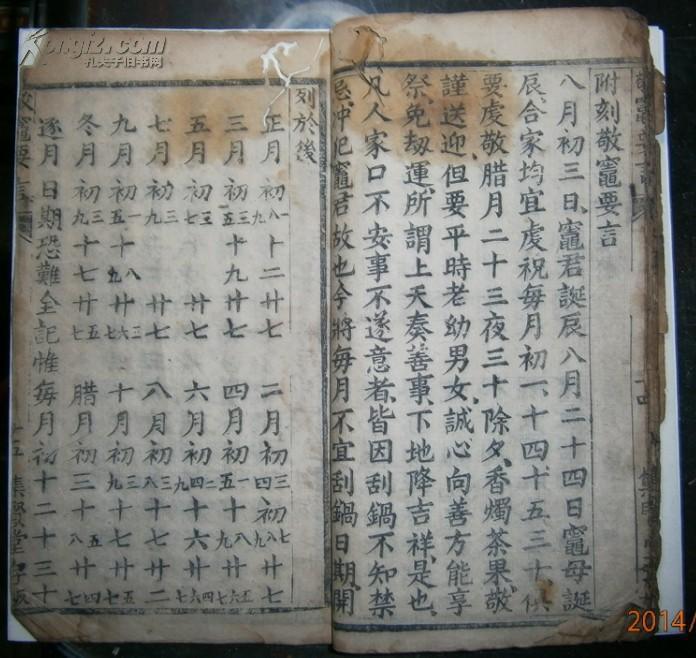 附刻敬竈要言
八月初三日、竈君誕辰、八月二十四日竈母誕
辰、合家均宜虔祝、每月初一、十四十五三十、供
要虔敬、腊月二十三夜三十除夕、香燭茶果、敬
謹送迎、但要平時老幼男女、誠心向善、方能享
祭、免劫運、所謂上天奏善事、下地降吉祥、是也、
凡人家口不安事不遂意者、皆因刮鍋不知禁
忌、冲犯竈君故也、今將每月不宜刮鍋日期、開
列於後
正月初 十二廿七 二月初 初 廿七
三月初 十九廿七 四月初 十 廿
五月初 廿七 六月初 十六廿
七月初 廿七 八月初 十七廿二
九月初 十 廿 十月初 十七廿
冬月初 十七廿 腊月初三十 廿
逐月日期恐難全記惟每月初十二十三十
敬竈要言
集賢堂存板
孔夫子旧书网
2014/